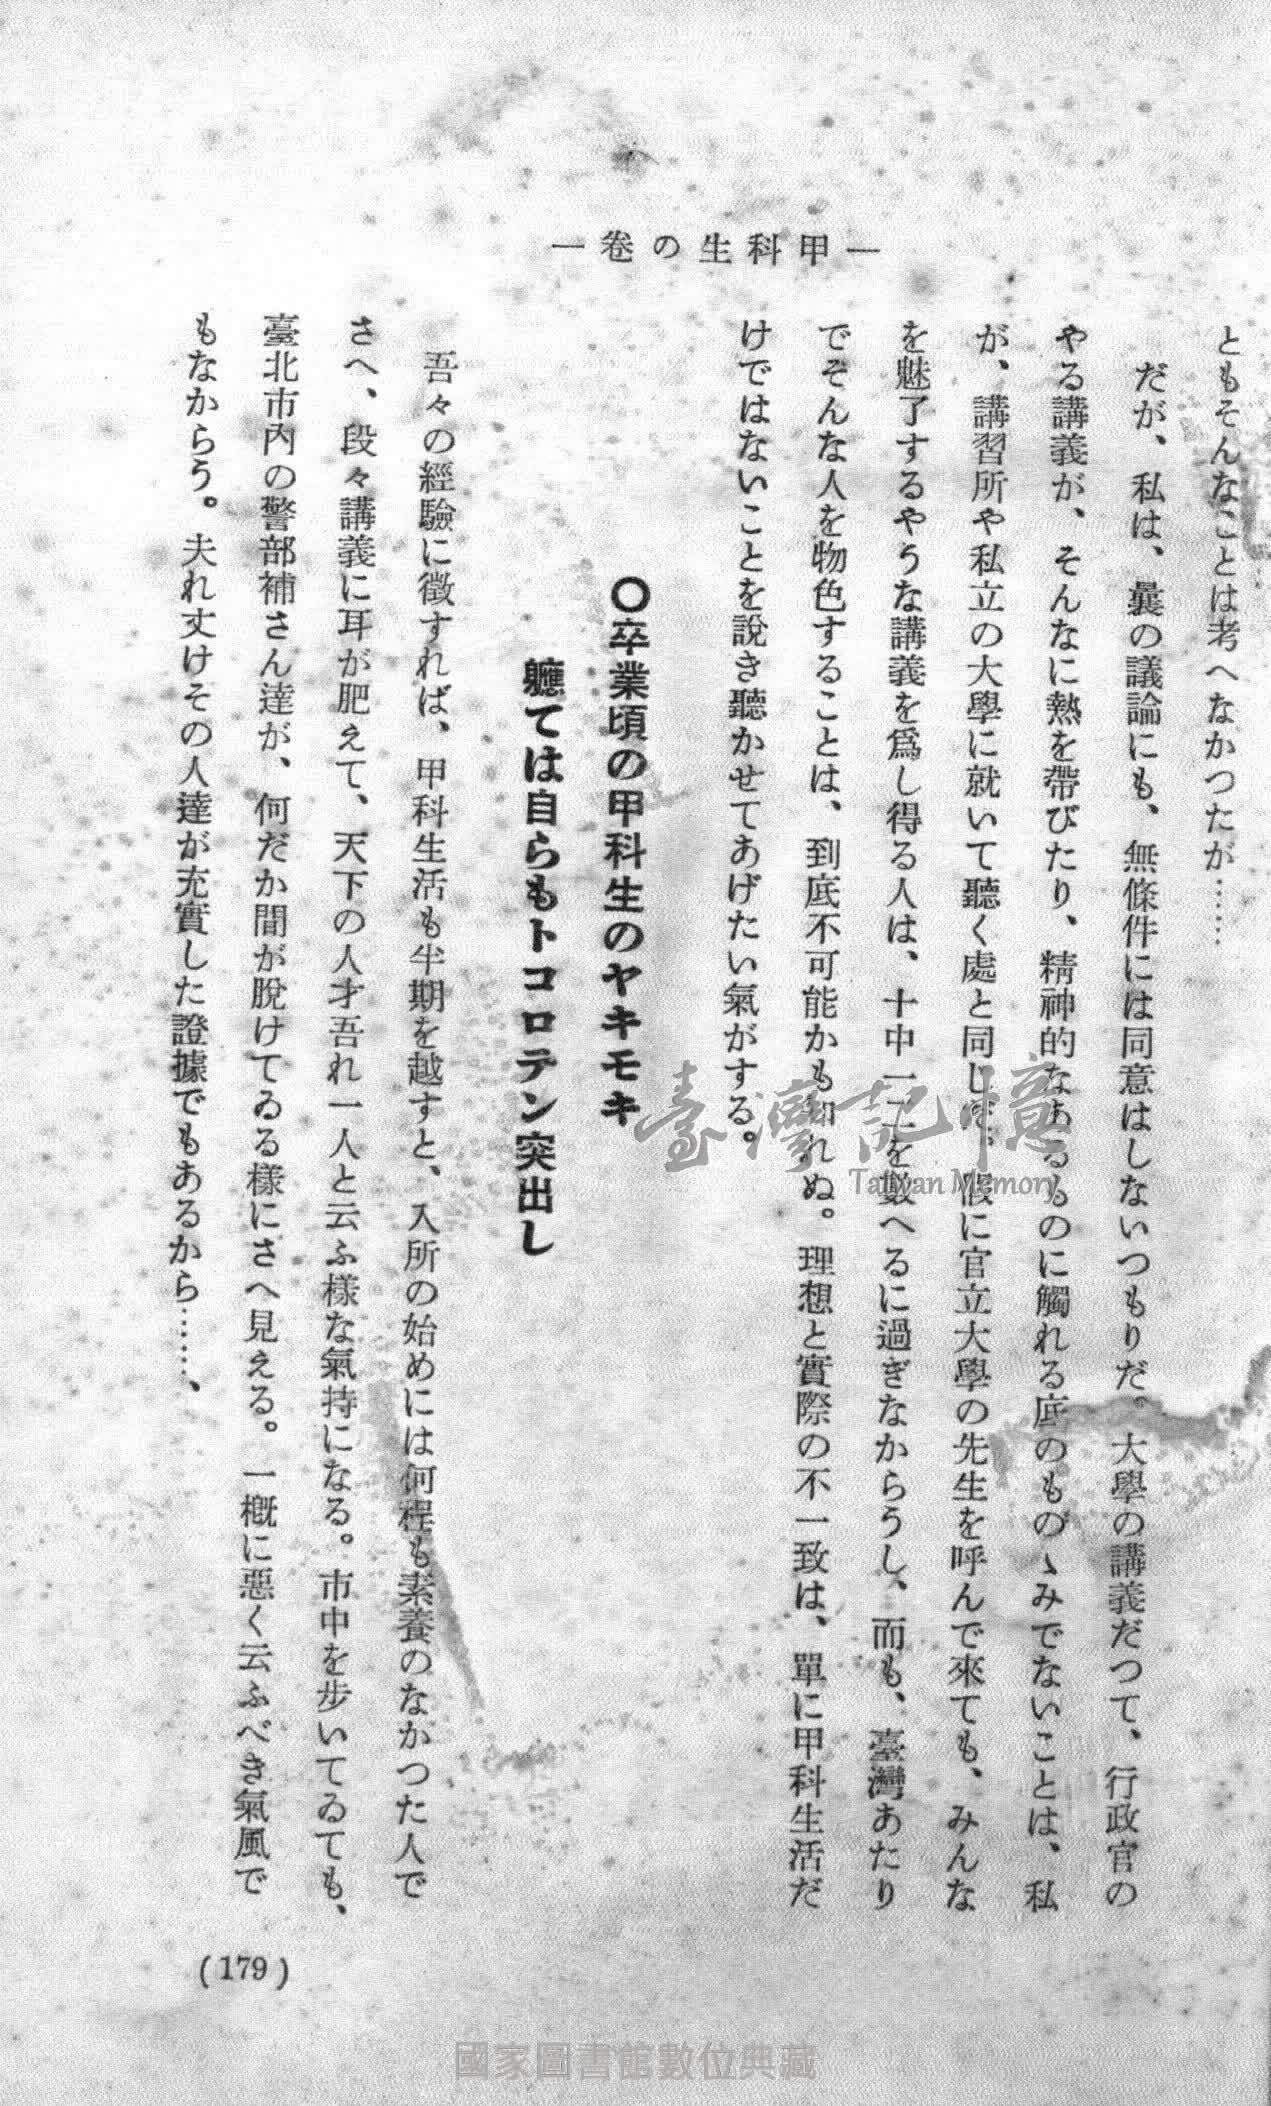 ―甲科生の卷―
ともそんなことは考へなかつたが……
だが、私は、曩の議論にも、無條件には同意はしないつもりだ。大學の講義だつて、行政官の
やる講義が、そんなに熱を帶びたり、精神的なあるものに觸れる底のものゝみでないことは、私
が、講習所や私立の大學に就いて聽く處と同じだ。假に官立大學の先生を呼んで來ても、みんな
を魅了するやうな講義を爲し得る人は、十中一二を數へるに過ぎなからうし、而も、臺灣あたり
でそんな人を物色することは、到底不可能かも知れぬ。理想と實際の不一致は、單に甲科生活だ
けではないことを說き聽かせてあげたい氣がする。
〇卒業頃の甲科生のヤキモキ
軈ては自らもトコロテン突出し
吾々の經驗に徵すれば、甲科生活も半期を越すと、入所の始めには何程も素養のなかつた人で
さへ、段々講義に耳が肥えて、天下の人才吾れ一人と云ふ樣な氣持になる。市中を步いてゐても、
臺北市內の警部補さん達が、何だか間が脫けてゐる樣にさへ見える。一槪に惡く云ふべき氣風で
もなからう。夫れ丈けその人達が充實した證據でもあるから……、
(179)
臺灣記憶
Taiwan Memory
國家圖書館數位典藏